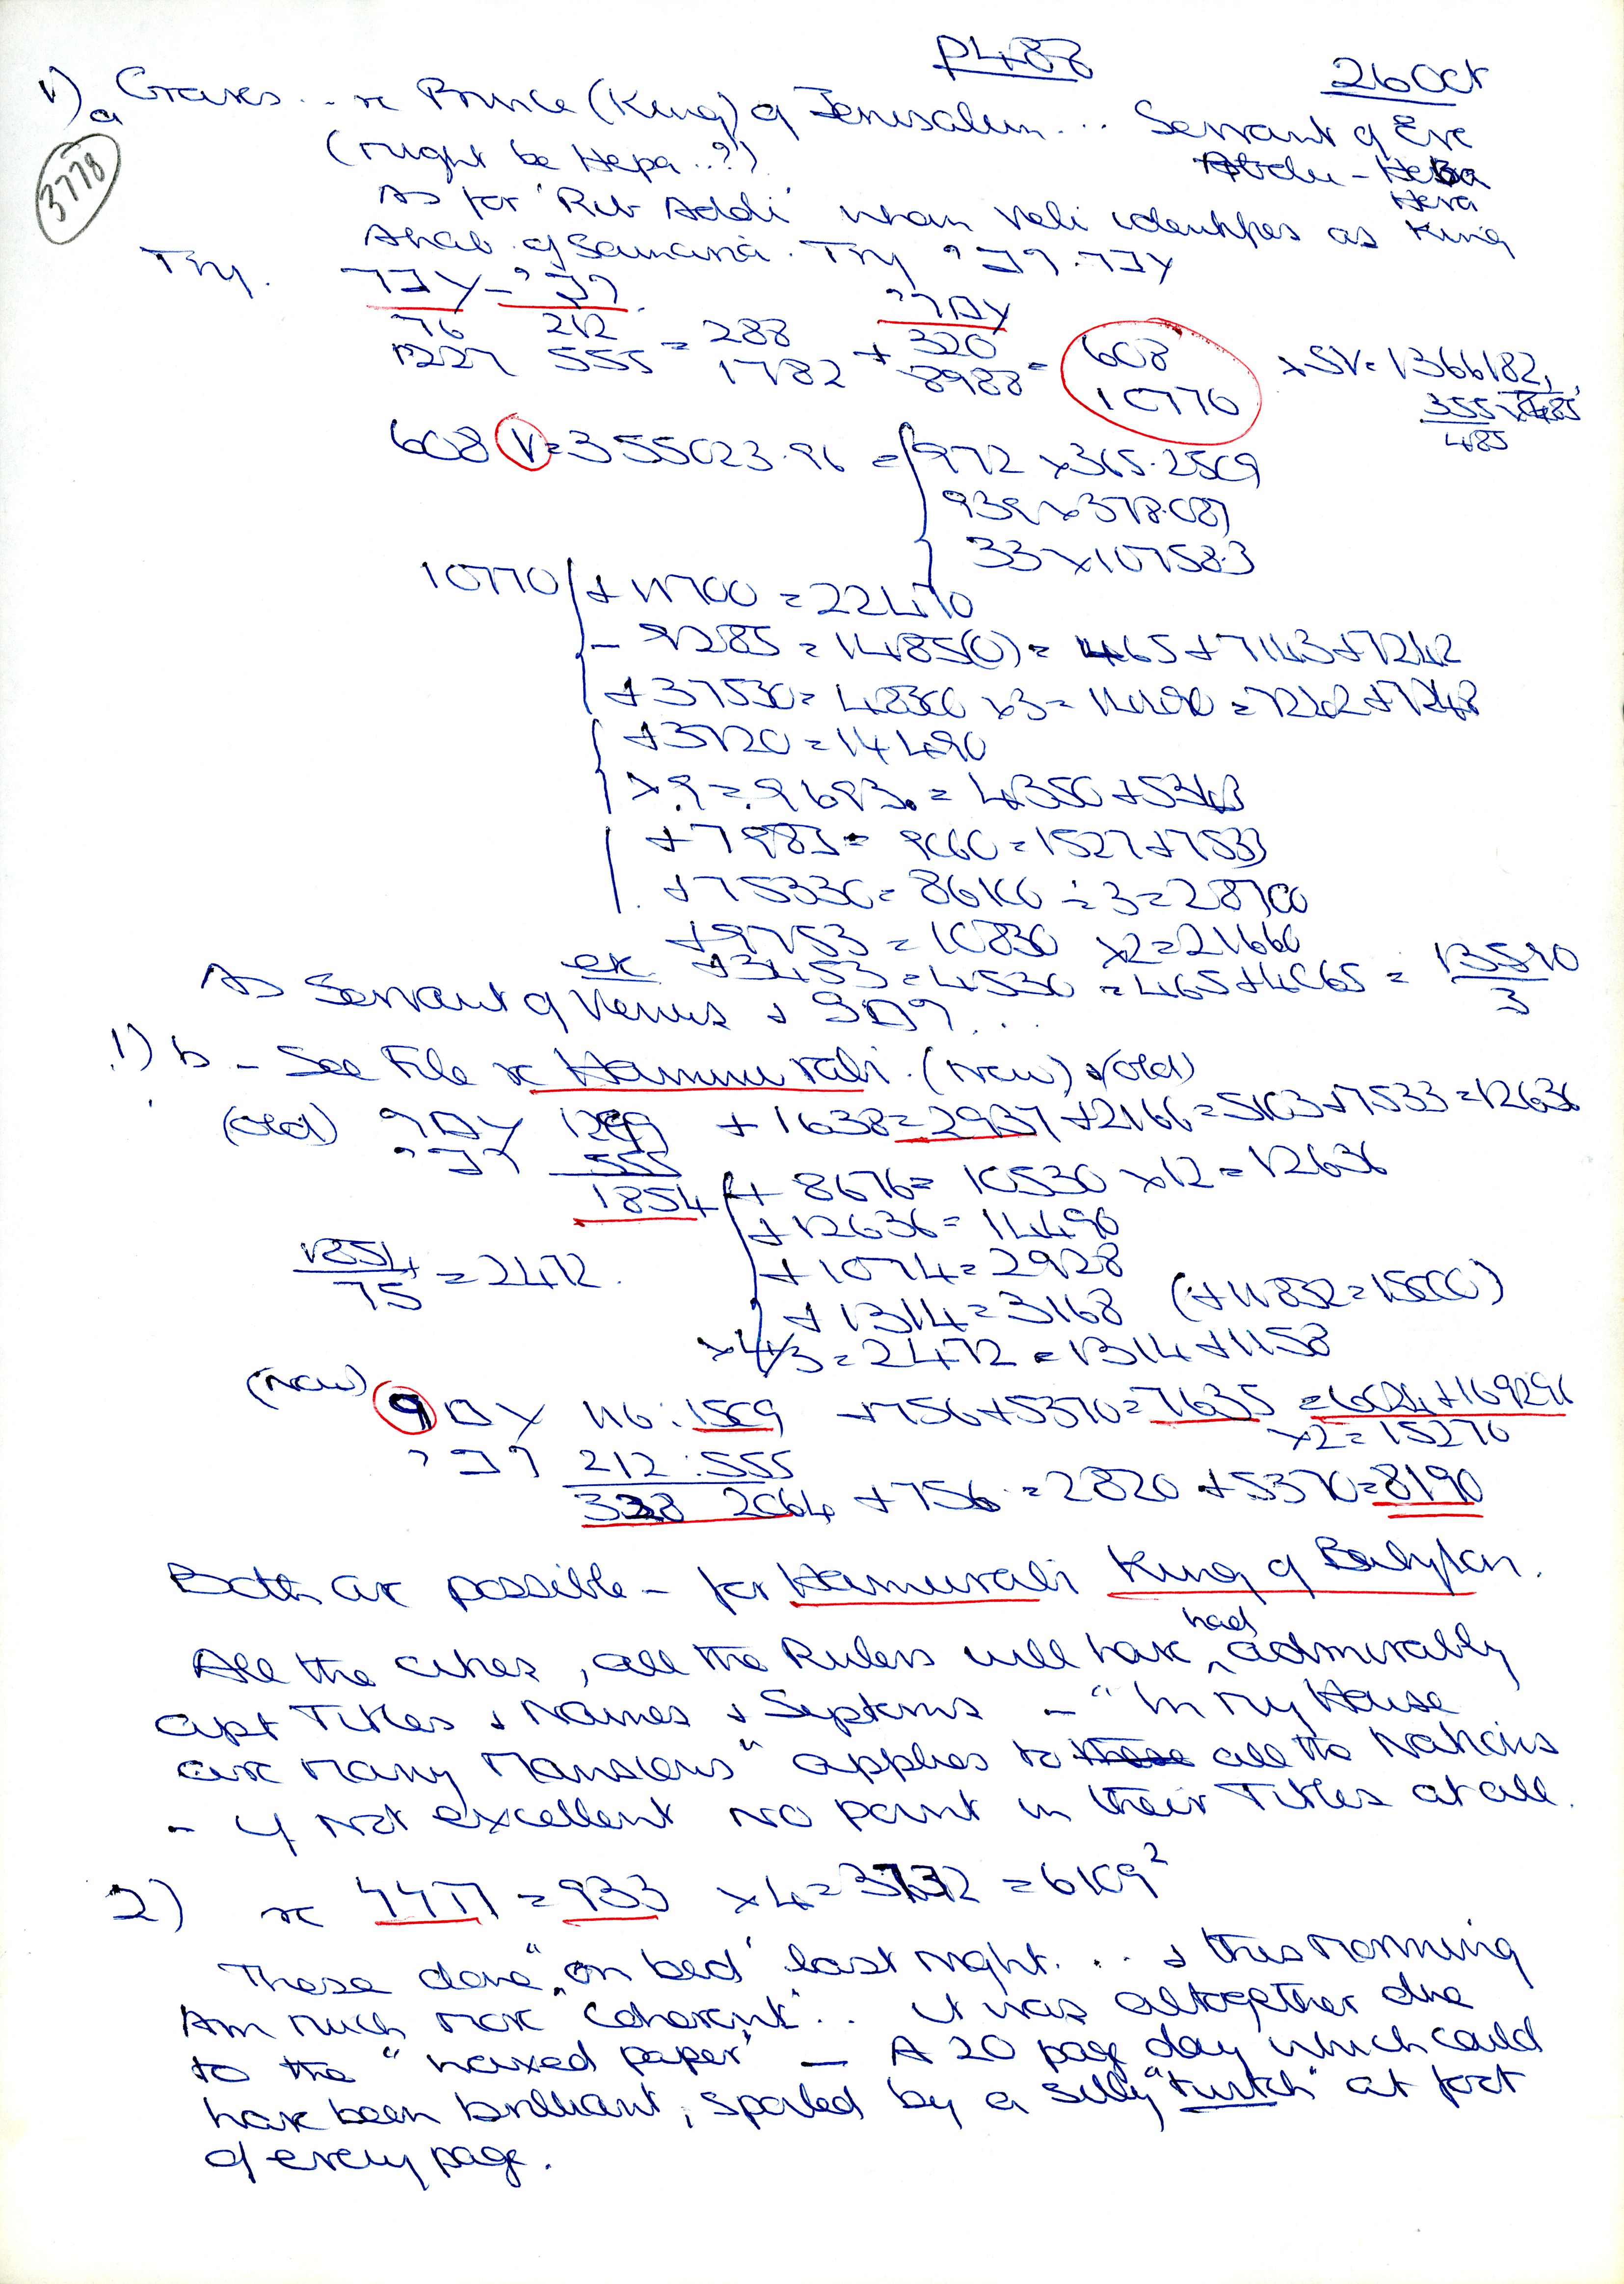 P488
26 Oct
3778
1) a Graves .. re Prince (King) of Jerusalem ... Servant of Eve
(might be Hepa ..?) Abdu - Heba
Heva
As for 'Rib Addi' whom Veli identifies as King
Ahab of Samaria. Try
Try.
76 212 = 288 + 320 = 608
1227 555 1782 8988 10770
x SV = 1366182,
355 x
485
608 V = 355023.96 = 972 x 365.2509
939 x 378.089
33 x 10758.3
10770 + 11700 = 22470
- 9285 = 1485(0) = 465 + 7143 + 7242
+ 37530 = 48300 x 3 = 14490 = 7242 + 7248
+ 3720 = 14490
x 9 = 9693. = 4350 + 5343
+ 7983 = 9060 = 1527 + 7533
+ 75330 = 86100 ÷ 3 = 28700
+ 9753 = 10830 x2 = 21660
ex + 3453 = 4530 = 465 + 4065 = 13590
3
As Servant of Venus + ...
1) b - See File re Hammurabi. (New) & (Old)
(Old) 1299 + 1638 = 2937 + 2166 = 5103 + 7533 = 12636
555
1854 + 8676 = 10530 x12 = 12636
+ 12636 = 14490
1854 = 2472.
75
+ 1074 = 2928
+ 1314 = 3168 (+ 11832 = 15000)
x 4/3 = 2472 = 1314 + 1158
(New) 116 : 1509 + 756 + 5370 = 7635 = 6024 +
x2 = 15270
212 : 555
328 2064 + 756 = 2820 + 5370 = 8190
Both are possible - for Hamurabi King of Babylon.
had
All the cities, all the Rulers will have ^ admirably
apt Titles & Names & Systems - "In my House
are many Mansions" applies to these all the Nations
- if not excellent no point in their Titles at all.
2) re = 933 x 4 = 3732 = 6109²
These done "on bed" last night ... & this morning
Am much more "coherent" .. it was altogether due
to the "waxed paper" - A 20 page day which could
have been brilliant, spoiled by a silly at foot
of every page.